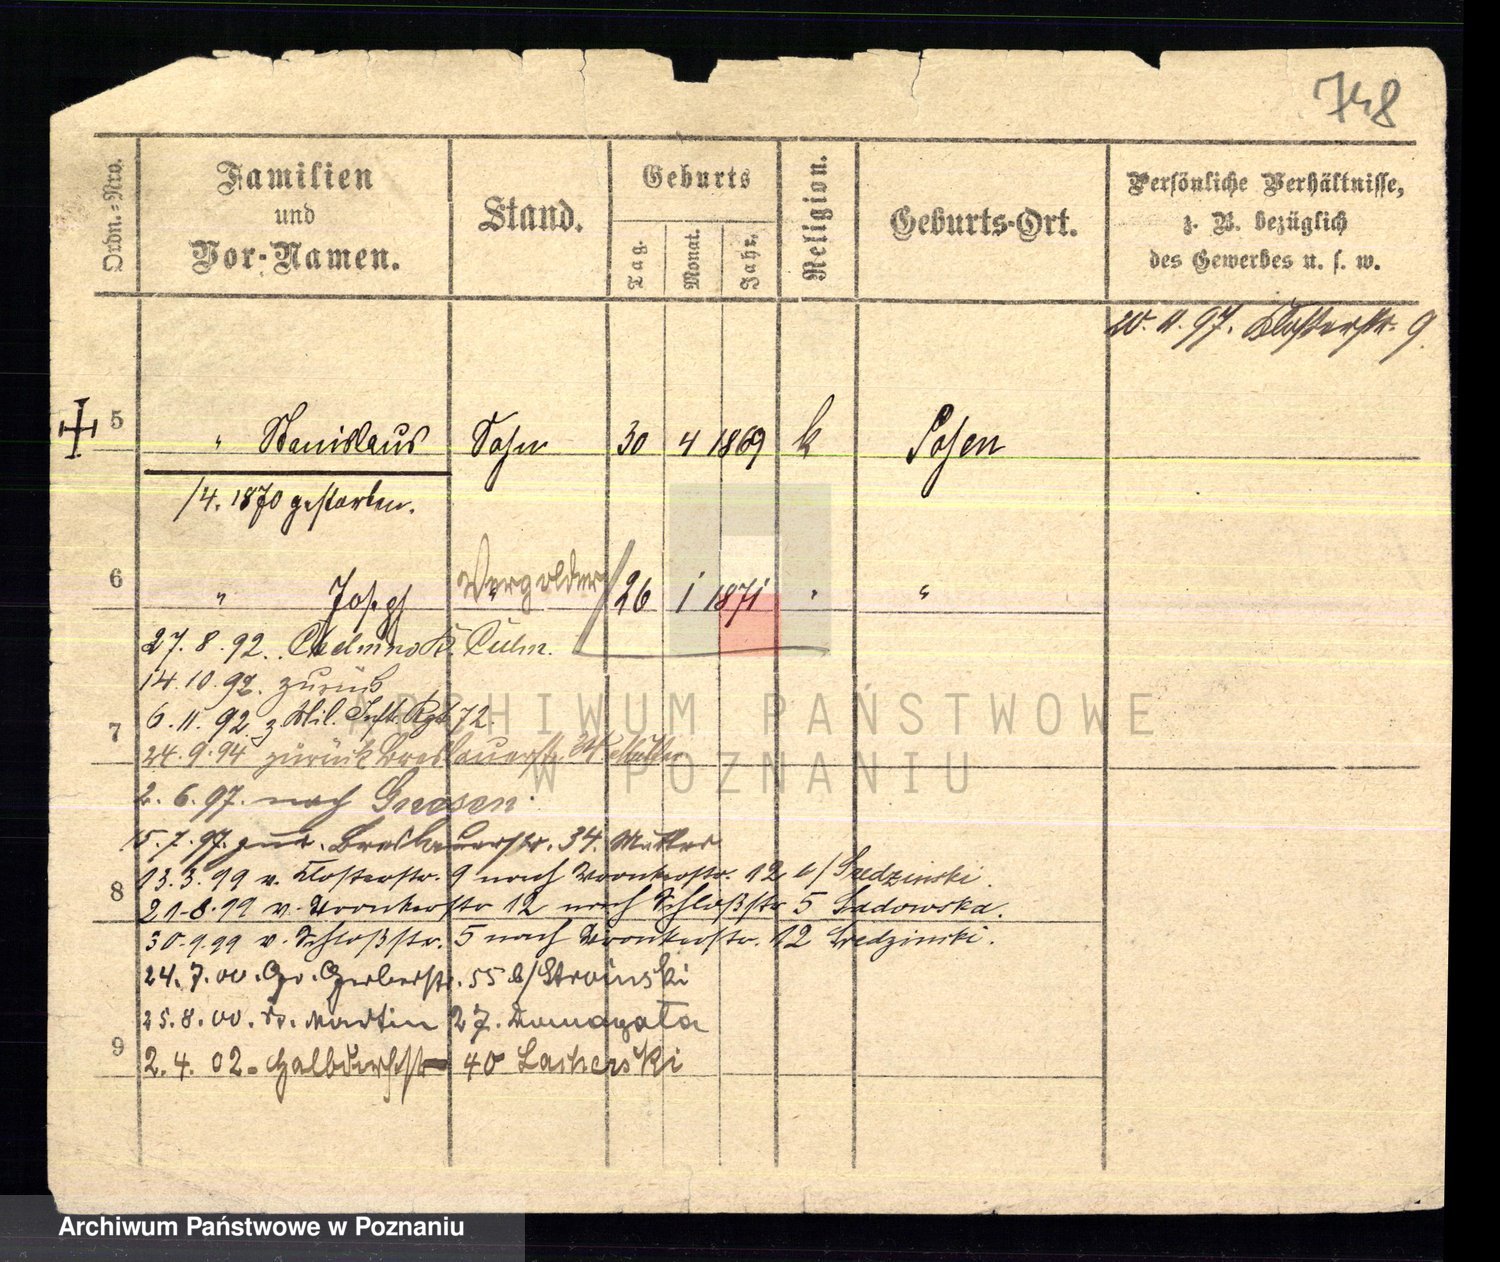 748
Ordn.-Nro.
Familien
und
Vor-Namen.
Stand.
Geburts
Tag.
Monat.
Jahr.
Religion.
Geburts-Ort.
Persönliche Verhältnisse,
z. B. bezüglich
des Gewerbes u. s. w.
20. 11. 97. Klosterstr. 9
5 " Stanislaus Sohn 30 4 1869 k Posen
/4. 1870 gestorben.
6 " Joseph Vergolder 26 1 1871 " "
27. 8. 92. Chelmno K. Culm.
14. 10. 92. zurück
6. 11. 92 z. Mil. Inft. Rgt. 72.
7
24. 9. 94 zurück Breslauerstr. 34 Mutter
2. 6. 97. nach Gnesen.
15. 7. 97. zur. Breslauerstr. 34. Mutter
8
13. 3. 99 v. Klosterstr. 9 nach Wronkerstr. 12 b/ Sredzinski.
21. 8. 99 v. Wronkerstr 12 nach Schloßstr 5 Sadowska.
30. 9. 99 v. Schloßstr. 5 nach Wronkerstr. 12 Sredzinski.
24. 7. 00. Gr. Gerberstr. 55 b/ Stroinski
25. 8. 00. St. Martin 27.
9
2. 4. 02. Halbdorfstr 40
ARCHIWUM PAŃSTWOWE
W POZNANIU
Archiwum Państwowe w Poznaniu